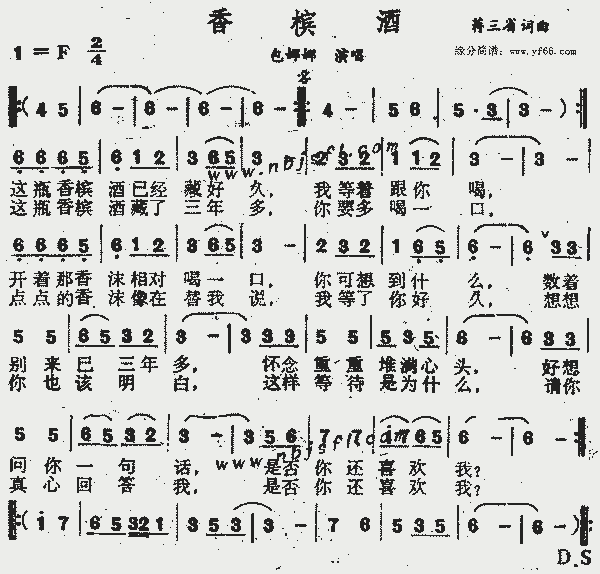 香槟酒
蒋三省 词曲
1 = F 2/4
包娜娜 演唱
缘分简谱: www.yf66.com
( 4 5 | 6 - | 6 - | 6 - | 6 - : 4 - | 5 6 | 5 · 3 | 3 - ) :
6 6 6 5 | 6 1 2 | 3 6 5 | 3 - | 2 3 2 | 1 1 2 | 3 - | 3 - |
这瓶香槟 酒已经 藏好 久, 我等着 跟你 喝,
这瓶香槟 酒藏了 三年 多, 你要多 喝一 口,
6 6 6 5 | 6 1 2 | 3 6 5 | 3 - | 2 3 2 | 1 6 5 | 6 - | 6 3 3 |
开着那香 沫相对 喝一 口, 你可想 到什 么, 数着
点点的香 沫像在 替我 说, 我等了 你好 久, 想想
5 5 | 6 5 3 2 | 3 - | 3 3 3 | 5 5 | 5 3 5 | 6 - | 6 3 3 |
别来已三年多, 怀念重重堆满心头, 好想
你也该明白, 这样等待是为什么, 请你
5 5 | 6 5 3 2 | 3 - | 3 5 6 | 7 7 | i 6 5 | 6 - | 6 -
问你一句话, 是否你还喜欢我?
真心回答我, 是否你还喜欢我?
www.nbjsfl.com
( i 7 | 6 5 3 2 1 | 3 5 3 | 3 - | 7 6 | 5 3 5 | 6 - | 6 - ) :
D.S